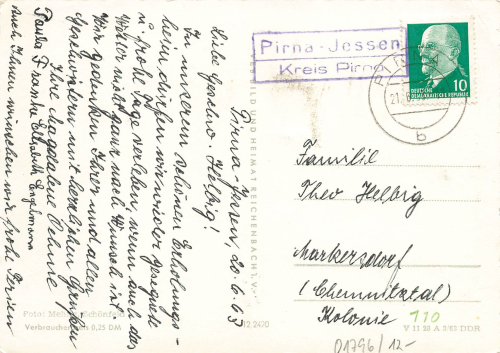 Pirna-Jessen, 20.6.63
Liebe Geschw. Helbig!
In unserem schönen Erholungs-
heim dürfen wir wieder gesegnete
u. frohe Tage verleben, wenn auch das
Wetter nicht ganz nach Wunsch ist.
Wir gedenken Ihrer und allen
Geschwistern mit herzlichen Grüßen
Ihre Magdalene Schöne
Paula Franke Elisabeth Engelmann
auch Ihnen wünschen wir frohe Ferien
Foto: Schönfeld
Verbraucherpreis 0,25 DM
BILD UND HEIMAT REICHENBACH I. V.
12 2420
Pirna-Jessen
Kreis Pirna
PIRNA
21.
b
10
DEUTSCHE
DEMOKRATISCHE REPUBLIK
Familie
Theo Helbig
Markersdorf
(Chemnitztal)
Kolonie
110
V 11 28 A 3/63 DDR
01796/12-